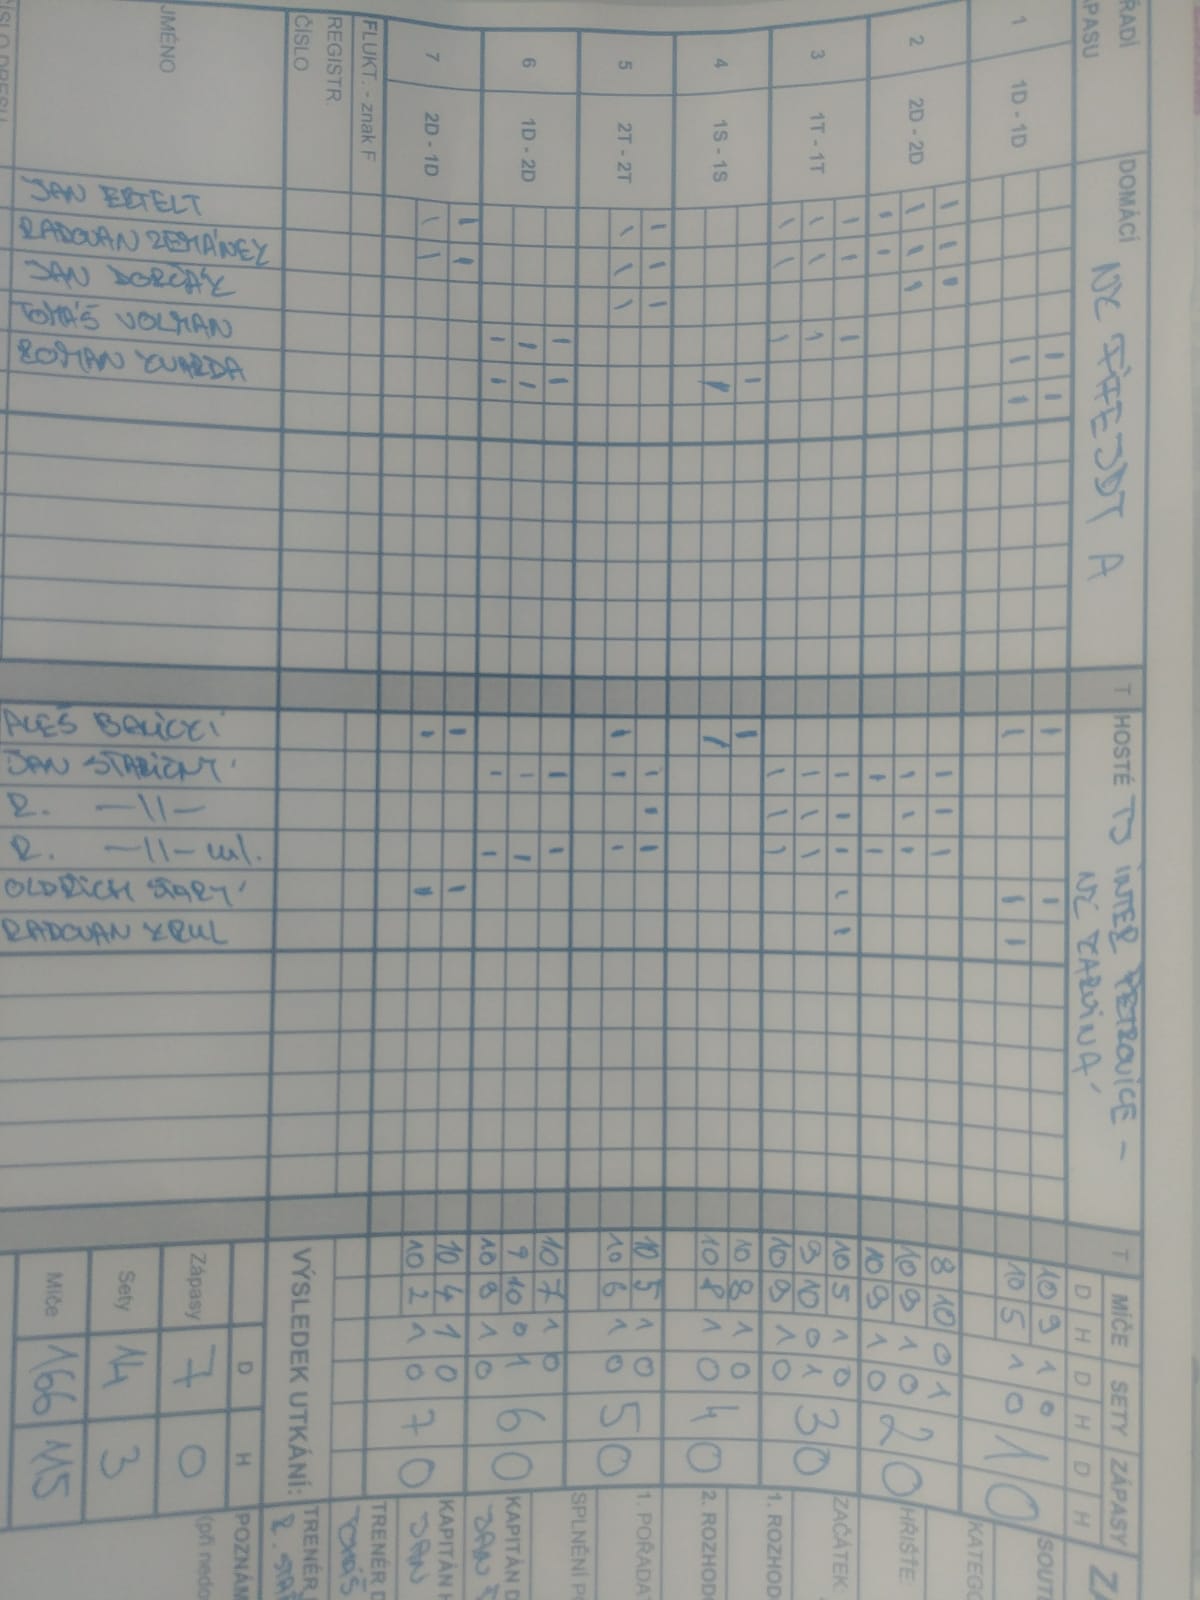 DOMÁCÍ NK TÁFEJDT A
T
HOSTÉ TJ INTER PETROVICE -
NK KARVINÁ
T
MÍČE SETY ZÁPASY
D H D H D H
1 1D - 1D
10 9 1 0
10 5 1 0 1 0
2 2D - 2D
8 10 0 1
10 9 1 0 2 0
10 9 1 0
3 1T - 1T
10 5 1 0
9 10 0 1 3 0
10 9 1 0
4 1S - 1S
10 8 1 0
10 8 1 0 4 0
5 2T - 2T
10 5 1 0
10 6 1 0 5 0
6 1D - 2D
10 7 1 0
9 10 0 1 6 0
10 8 1 0
7 2D - 1D
10 4 1 0
10 2 1 0 7 0
FLUKT. - znak F
REGISTR.
ČÍSLO
JMÉNO
JAN ERTELT
RADOVAN ZEMÁNEK
JAN DORČÁK
TOMÁŠ VOLMAN
ROMAN KVARDA
ALEŠ BALICKÍ
JAN STARIČNÝ
R. —II—
R. —II— ml.
OLDŘICH STARÝ
RADOVAN KRUL
VÝSLEDEK UTKÁNÍ:
D H
Zápasy 7 0
Sety 14 3
Míče 166 115
HŘIŠTĚ:
ZAČÁTEK:
1. ROZHOD
2. ROZHOD
1. POŘADA
KAPITÁN D
JAN
KAPITÁN H
JAN
TRENÉR D
TOMÁŠ
TRENÉR
POZNÁM